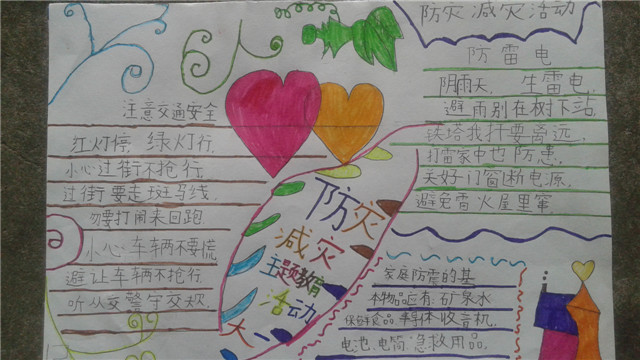 防灾减灾活动
防雷电
阴雨天,生雷电,
避雨别在树下站,
铁塔线杆要离远,
打雷家中也防患,
关好门窗断电源,
避免雷火屋里窜,
注意交通安全
红灯停,绿灯行,
小心过街不抢行,
过街要走斑马线,
打闹来回跑
小心车辆不要慌
避让车辆不抢行
听从交警守交规,
防灾
减灾
主题教育
活动
大一
家庭防震的基
本物品应有:矿泉水
保鲜食品、半导体收音机,
电池、电筒、急救用品。